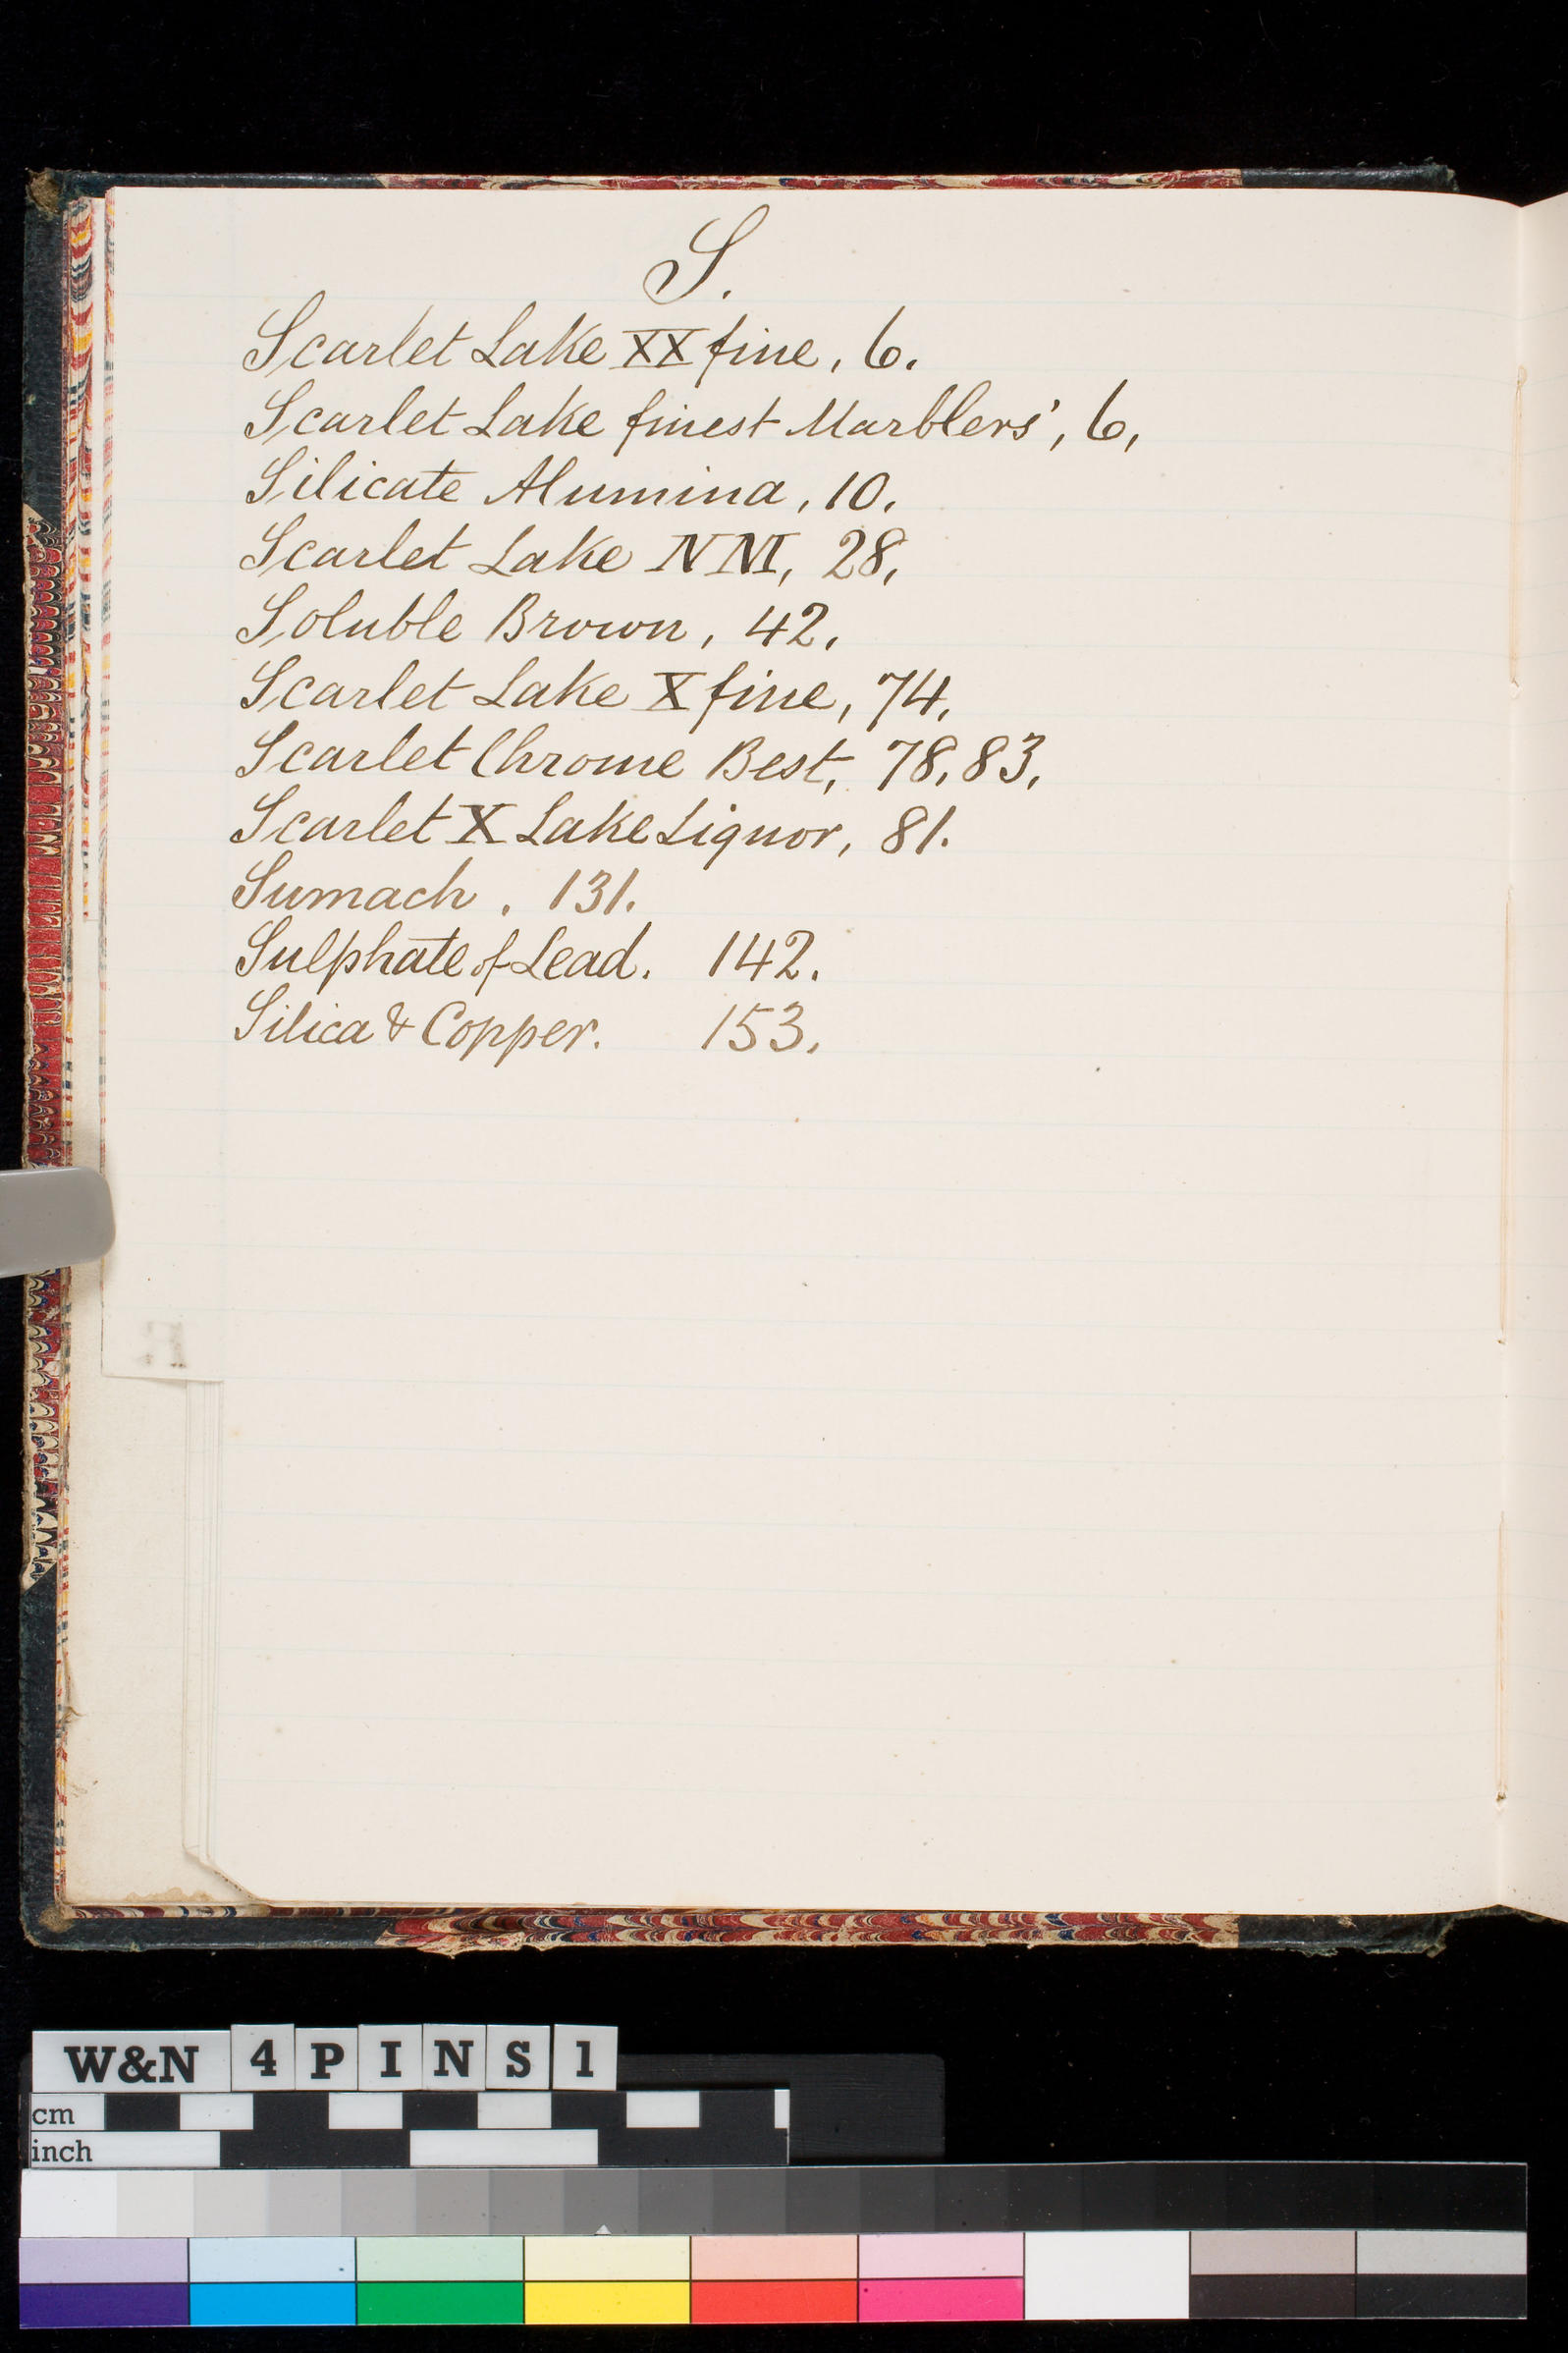 S.
Scarlet Lake XX fine, 6.
Scarlet Lake finest Marblers', 6,
Silicate Alumina, 10.
Scarlet Lake NM, 28,
Soluble Brown, 42.
Scarlet Lake X fine, 74,
Scarlet Chrome Best, 78, 83,
Scarlet X Lake Liquor, 81.
Sumach. 131.
Sulphate of Lead. 142.
Silica & Copper. 153.
W&N 4PINS1
cm
inch